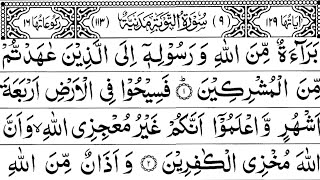 اٰیَاتُهَا ١٢٩ (٩) سُوْرَةُ التَّوْبَةِ مَدَنِيَّةٌ (١١٣) رُكُوْعَاتُهَا ١٦
بَرَآءَةٌ مِّنَ اللّٰهِ وَرَسُوْلِهٖۤ اِلَى الَّذِيْنَ عٰهَدْتُّمْ
مِّنَ الْمُشْرِكِيْنَ ۝١ فَسِيْحُوْا فِي الْاَرْضِ اَرْبَعَةَ
اَشْهُرٍ وَّاعْلَمُوْۤا اَنَّكُمْ غَيْرُ مُعْجِزِي اللّٰهِ ۙ وَاَنَّ
اللّٰهَ مُخْزِي الْكٰفِرِيْنَ ۝٢ وَاَذَانٌ مِّنَ اللّٰهِ